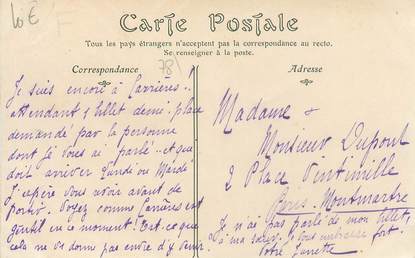 10 €
F
Carte Postale
Tous les pays étrangers n'acceptent pas la correspondance au recto.
Se renseigner à la poste.
Correspondance
78
Adresse
Je suis encore à Carrières!
attendant 1 billet demi-place
demandé par la personne
dont je vous ai parlé et que
doit arriver Lundi ou Mardi
J'espère vous voir avant de
partir. Voyez comme Carrières est
gentil en ce moment! Est-ce que
cela ne vs donne pas envie d'y venir.
Madame &
Monsieur Dupont
2 Place Vintimille
Paris. Montmartre
Je n'ai pas parlé de mon billet
à ma sœur. Je vous embrasse fort.
Votre Fanette